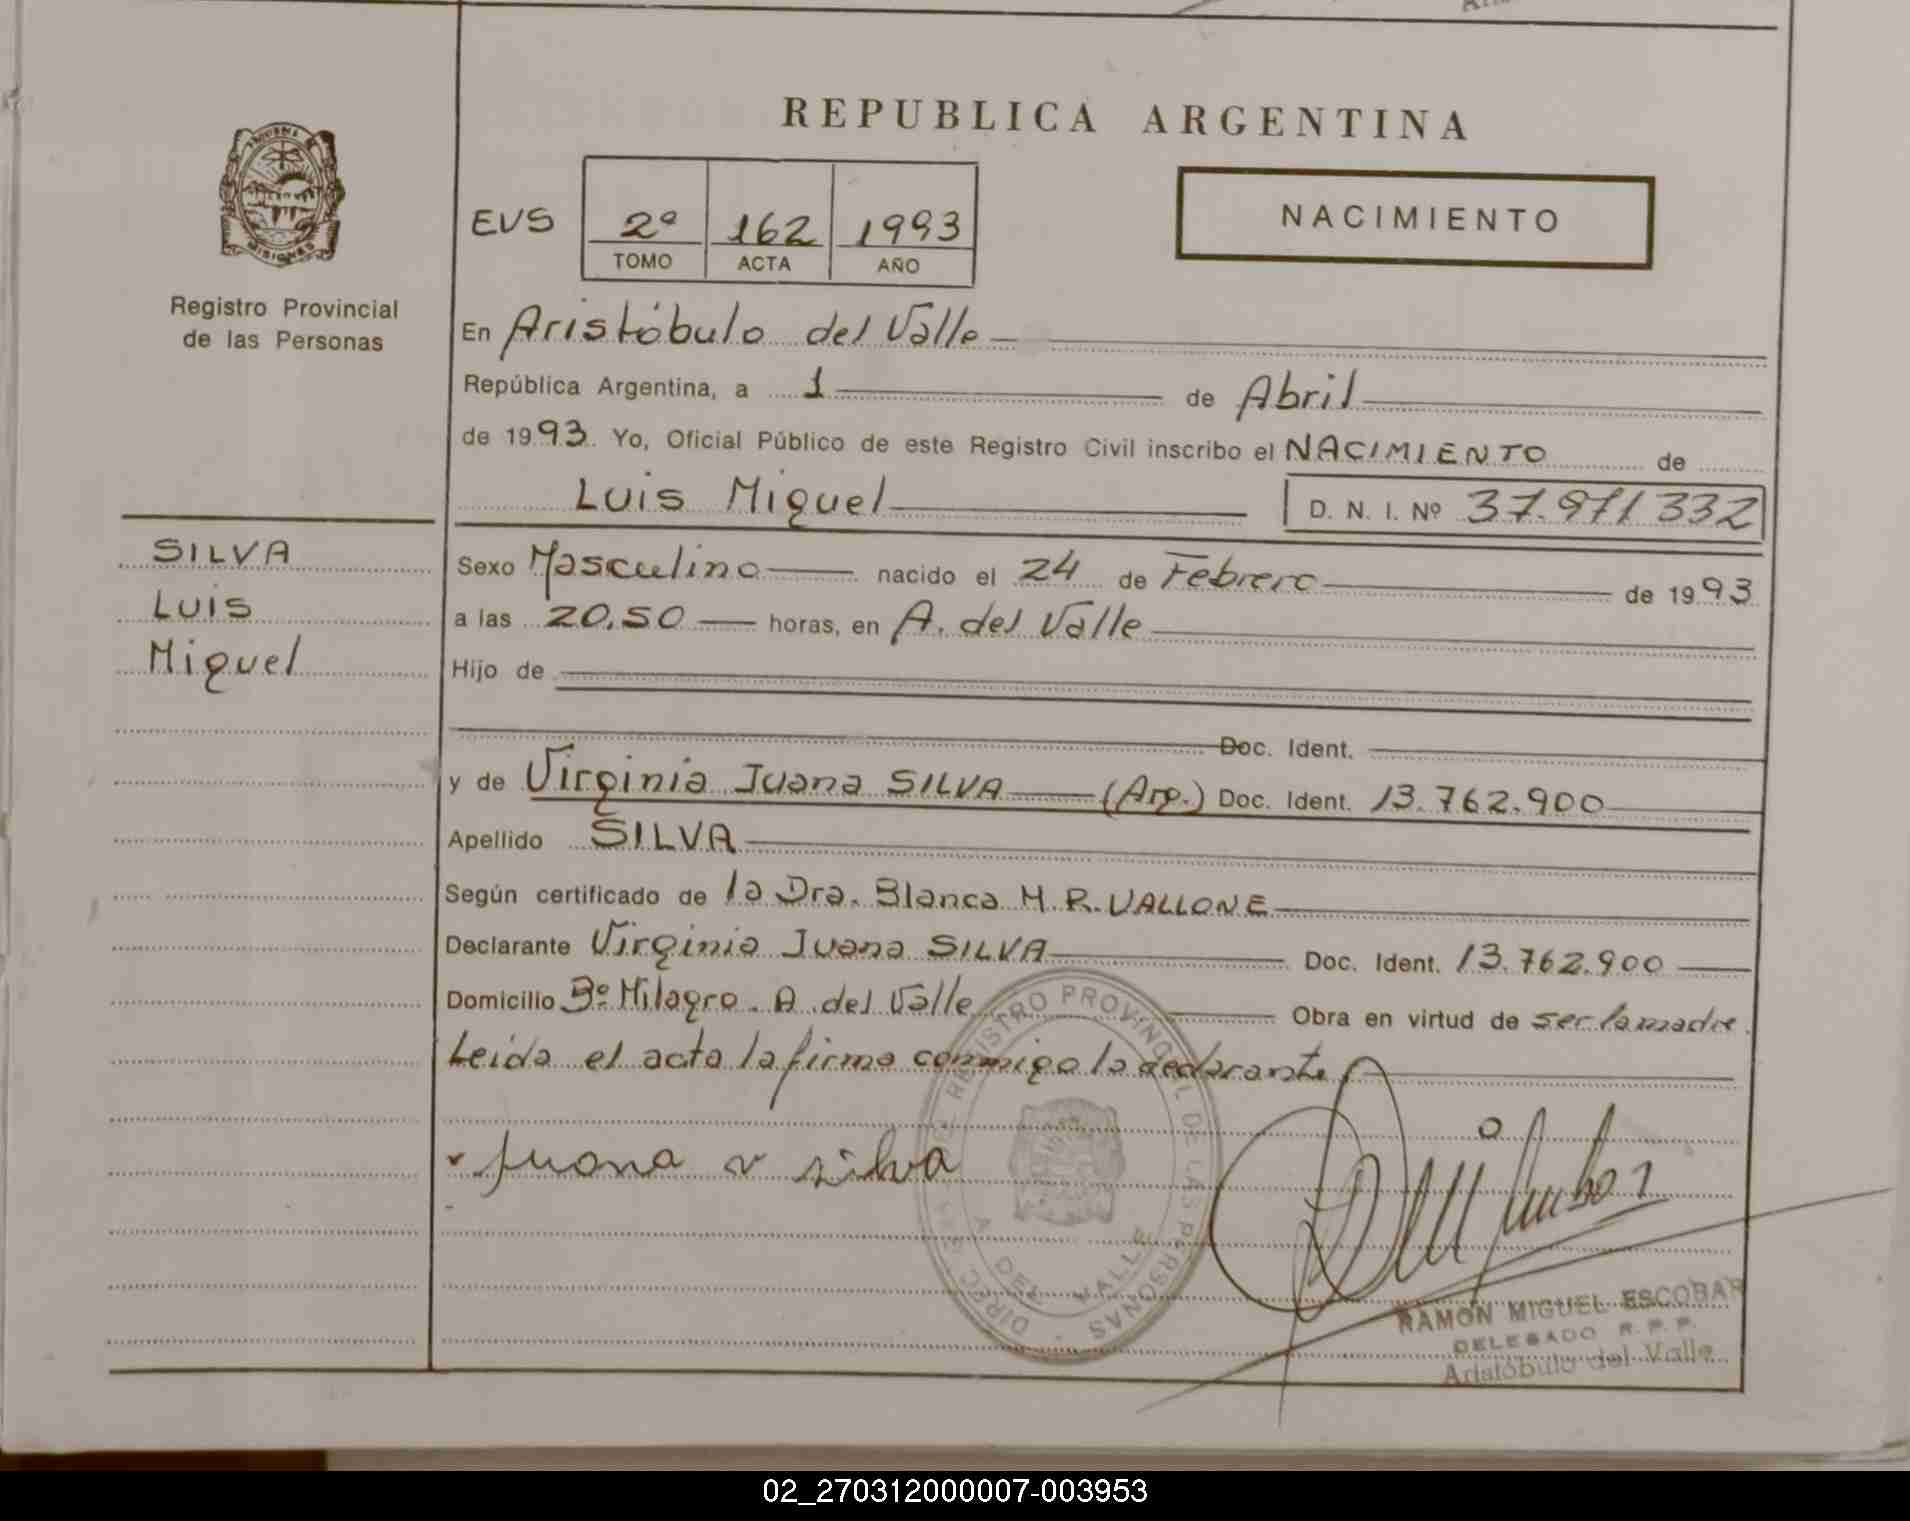 REPUBLICA ARGENTINA
MISIONES
Registro Provincial
de las Personas
EVS
2º 162 1993
TOMO ACTA AÑO
NACIMIENTO
En Aristóbulo del Valle
República Argentina, a 1 de Abril
de 1993. Yo, Oficial Público de este Registro Civil inscribo el NACIMIENTO de
Luis Miguel D. N. I. Nº 37.971332
SILVA
Luis
Miguel
Sexo Masculino nacido el 24 de Febrero de 1993
a las 20,50 horas, en A. del Valle
Hijo de
Doc. Ident.
y de Virginia Juana SILVA (Arg.) Doc. Ident. 13.762.900
Apellido SILVA
Según certificado de la Dra. Blanca M. R. VALLONE
Declarante Virginia Juana SILVA Doc. Ident. 13.762.900
Domicilio Bº Milagro. A. del Valle Obra en virtud de ser la madre.
Leida el acta la firma conmigo la declarante
Juana v silva
REGISTRO PROVINCIAL DE LAS PERSONAS
A. DEL VALLE
RAMON MIGUEL ESCOBAR
DELEGADO R. P. P.
Aristóbulo del Valle
02_270312000007-003953